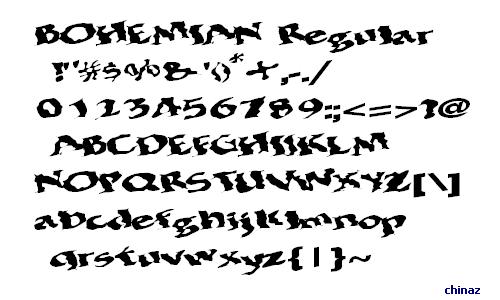 BOHEMIAN Regular
!"#$%&'()*+,-./
0123456789:;<=>?@
ABCDEFGHIJKLM
NOPQRSTUVWXYZ[\]
abcdefghijklmnop
qrstuvwxyz{|}~
chinaz